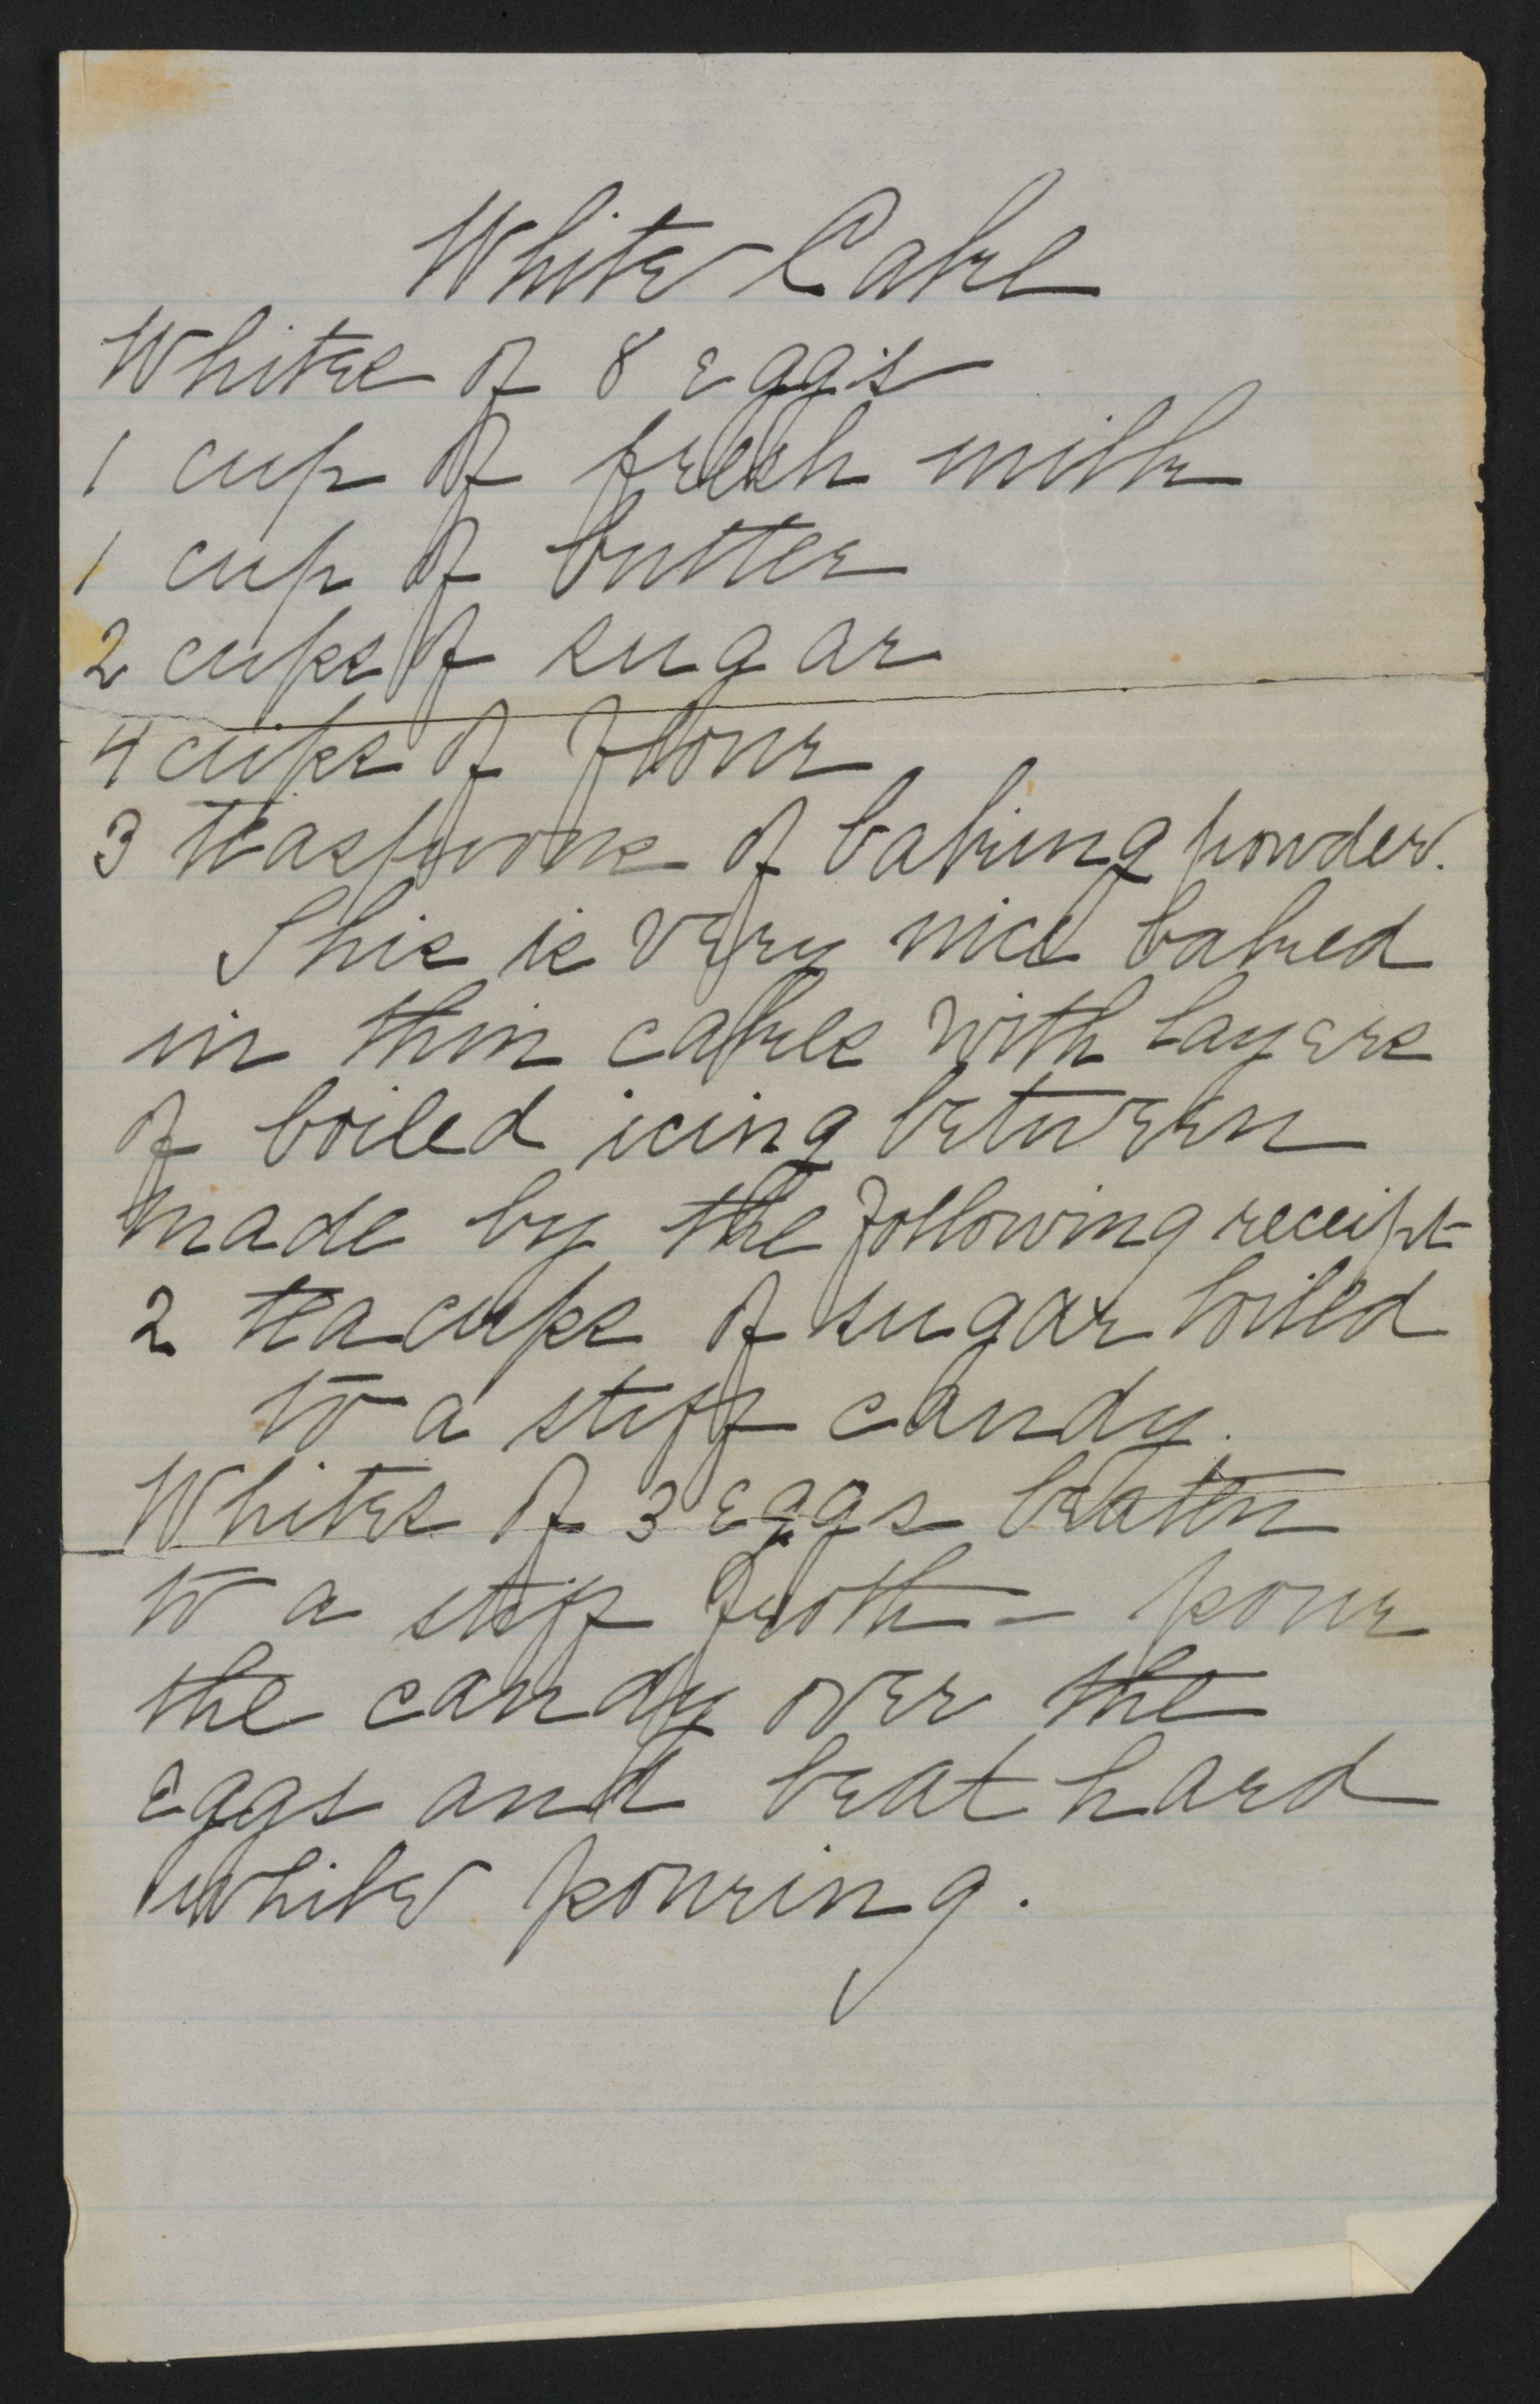 White Cake
Whites of 8 eggs
1 cup of fresh milk
1 cup of butter
2 cups of sugar
4 cups of flour
3 teaspoons of baking powder.
This is very nice baked
in thin cakes with layers
of boiled icing between
made by the following receipt
2 teacups of sugar boiled
to a stiff candy.
Whites of 3 eggs beaten
to a stiff froth - pour
the candy over the
eggs and beat hard
while pouring.